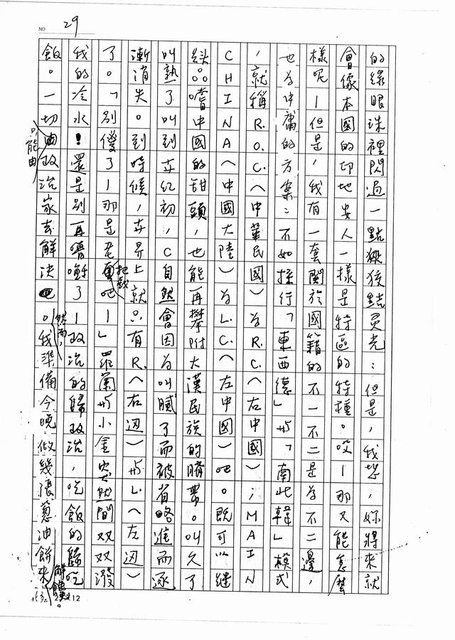 NO
29
的綠眼珠裡閃過一點猴猴點灵光：但是，我想，妳將來就
會像本國的印地安人一樣是特區的特種。哎！那又能怎麼
樣呢！但是，我有一套關於國籍的不一不二是為不二邊，
也為中庸的方案：不如採行「東西德」與「南北韓」模式
，就稱R.O.C.（中華民國）為R.C.（右中國）；MAIN
CHINA（中國大陸）為L.C.（左中國）吧。既可以繼
續嚐中國的甜頭，也能再攀附大漢民族的臍帶。叫久了
叫熟了叫到世紀初，C自然會因為叫膩了而被省略進而逐
漸消失。到時候，世界上就只有R.（右边）與L.（左边）
了。「別傻了！那是老把戲吧！」羅蘭與小金突然間双双潑
我的冷水！還是別再嚼了！政治的歸政治，吃飯的歸吃
飯。一切只能由政治家去解決。然而，我準備今晚做幾張蔥油餅來解饞。